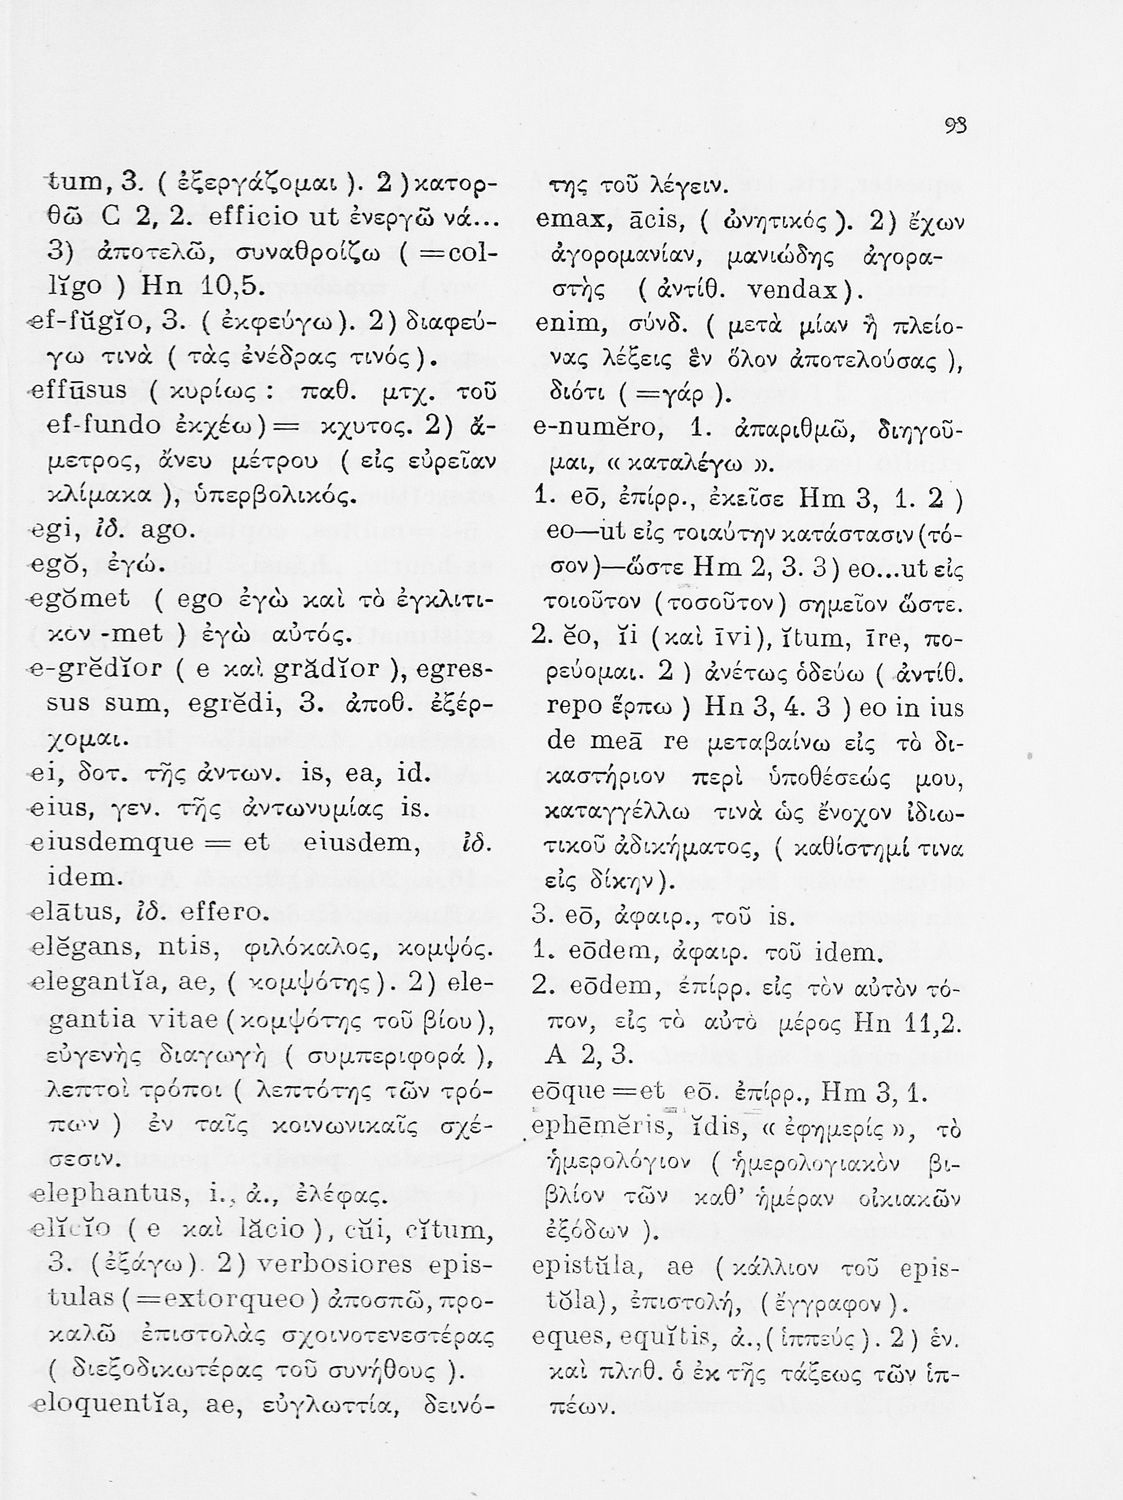 93
tum, 3. ( ἐξεργάζομαι ). 2 ) κατορ-
θῶ C 2, 2. efficio ut ἐνεργῶ νά...
3) ἀποτελῶ, συναθροίζω ( =col-
lĭgo ) Hn 10,5.
ef-fŭgĭo, 3. ( ἐκφεύγω ). 2) διαφεύ-
γω τινὰ ( τὰς ἐνέδρας τινός ).
effūsus ( κυρίως : παθ. μτχ. τοῦ
ef-fundo ἐκχέω ) = κχυτος. 2) ἄ-
μετρος, ἄνευ μέτρου ( εἰς εὐρεῖαν
κλίμακα ), ὑπερβολικός.
egi, ἰδ. ago.
egŏ, ἐγώ.
egŏmet ( ego ἐγὼ καὶ τὸ ἐγκλιτι-
κον -met ) ἐγὼ αὐτός.
e-grĕdĭor ( e καὶ grădĭor ), egres-
sus sum, egrĕdi, 3. ἀποθ. ἐξέρ-
χομαι.
ei, δοτ. τῆς ἀντων. is, ea, id.
eius, γεν. τῆς ἀντωνυμίας is.
eiusdemque = et eiusdem, ἰδ.
idem.
elātus, ἰδ. effero.
elĕgans, ntis, φιλόκαλος, κομψός.
elegantĭa, ae, ( κομψότης ). 2) ele-
gantia vitae ( κομψότης τοῦ βίου ),
εὐγενὴς διαγωγὴ ( συμπεριφορά ),
λεπτοὶ τρόποι ( λεπτότης τῶν τρό-
πων ) ἐν ταῖς κοινωνικαῖς σχέ-
σεσιν.
elephantus, i., ἀ., ἐλέφας.
elĭcĭo ( e καὶ lăcio ), cŭi, cĭtum,
3. (ἐξάγω). 2) verbosiores epis-
tulas ( =extorqueo ) ἀποσπῶ, προ-
καλῶ ἐπιστολὰς σχοινοτενεστέρας
( διεξοδικωτέρας τοῦ συνήθους ).
eloquentĭa, ae, εὐγλωττία, δεινό-
της τοῦ λέγειν.
emax, ācis, ( ὠνητικός ). 2) ἔχων
ἀγορομανίαν, μανιώδης ἀγορα-
στὴς ( ἀντίθ. vendax ).
enim, σύνδ. ( μετὰ μίαν ἢ πλείο-
νας λέξεις ἓν ὅλον ἀποτελούσας ),
διότι ( =γάρ ).
e-numĕro, 1. ἀπαριθμῶ, διηγοῦ-
μαι, « καταλέγω ».
1. eō, ἐπίρρ., ἐκεῖσε Hm 3, 1. 2 )
eo—ut εἰς τοιαύτην κατάστασιν (τό-
σον )—ὥστε Hm 2, 3. 3 ) eo...ut εἰς
τοιοῦτον ( τοσοῦτον ) σημεῖον ὥστε.
2. ĕo, ĭi (καὶ īvi), ĭtum, īre, πο-
ρεύομαι. 2 ) ἀνέτως ὁδεύω ( ἀντίθ.
repo ἕρπω ) Hn 3, 4. 3 ) eo in ius
de meā re μεταβαίνω εἰς τὸ δι-
καστήριον περὶ ὑποθέσεώς μου,
καταγγέλλω τινὰ ὡς ἔνοχον ἰδιω-
τικοῦ ἀδικήματος, ( καθίστημί τινα
εἰς δίκην ).
3. eō, ἀφαιρ., τοῦ is.
1. eōdem, ἀφαιρ. τοῦ idem.
2. eōdem, ἐπίρρ. εἰς τὸν αὐτὸν τό-
πον, εἰς τὸ αὐτὸ μέρος Hn 11,2.
A 2, 3.
eōque =et eō. ἐπίρρ., Hm 3, 1.
ephēmĕris, ĭdis, « ἐφημερίς », τὸ
ἡμερολόγιον ( ἡμερολογιακὸν βι-
βλίον τῶν καθ’ ἡμέραν οἰκιακῶν
ἐξόδων ).
epistŭla, ae ( κάλλιον τοῦ epis-
tŏla), ἐπιστολή, ( ἔγγραφον ).
eques, equĭtis, ἀ.,( ἱππεύς ). 2 ) ἑν.
καὶ πληθ. ὁ ἐκ τῆς τάξεως τῶν ἱπ-
πέων.